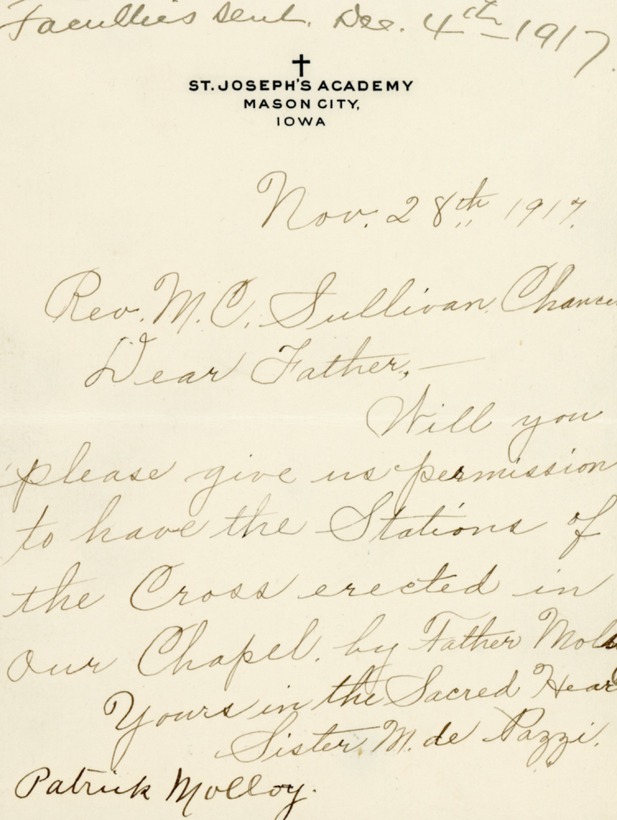 Faculties sent. Dec. 4th 1917.
ST. JOSEPH'S ACADEMY
MASON CITY,
IOWA
Nov. 28th 1917.
Rev. M. C. Sullivan. Chance
Dear Father,—
Will you
please give us permission
to have the Stations of
the Cross erected in
our Chapel. by Father Moll
Yours in the Sacred Heart
Sister M. de Pazzi.
Patrick Molloy.